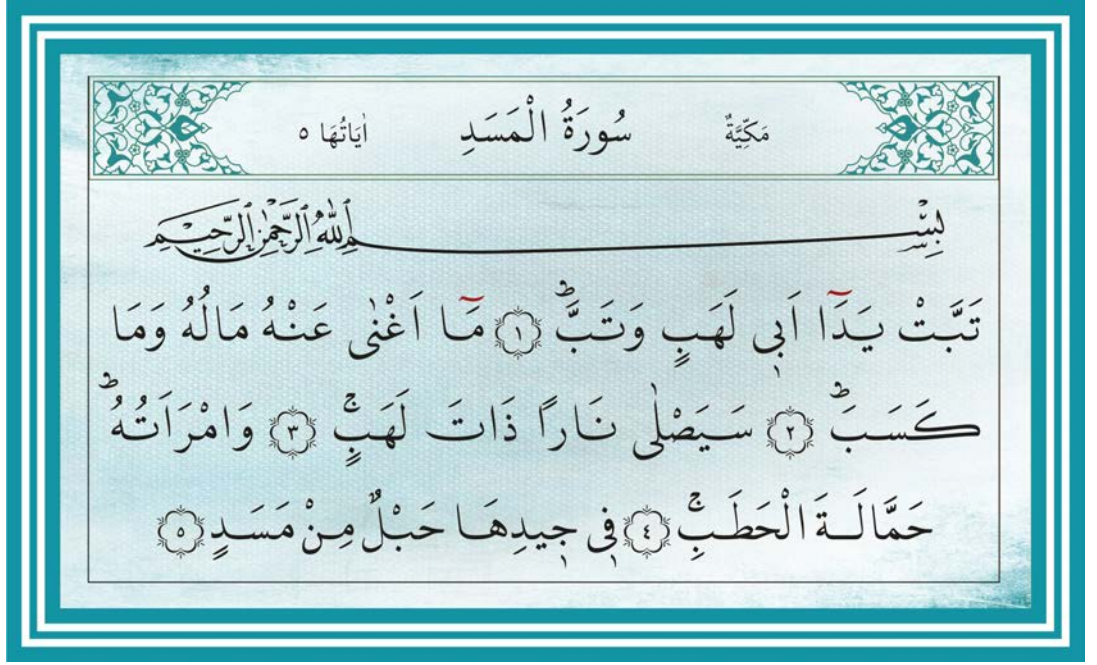 مَكِّيَّةٌ سُورَةُ الْمَسَدِ اٰيَاتُهَا ٥
بِسْمِ اللّٰهِ الرَّحْمٰنِ الرَّحِيمِ
تَبَّتْ يَدَٓا اَب۪ي لَهَبٍ وَتَبَّۜ ﴿١﴾ مَٓا اَغْنٰى عَنْهُ مَالُهُ وَمَا
كَسَبَۜ ﴿٢﴾ سَيَصْلٰى نَارًا ذَاتَ لَهَبٍۚ ﴿٣﴾ وَامْرَاَتُهُۜ
حَمَّالَةَ الْحَطَبِۚ ﴿٤﴾ ف۪ي ج۪يدِهَا حَبْلٌ مِنْ مَسَدٍ ﴿٥﴾